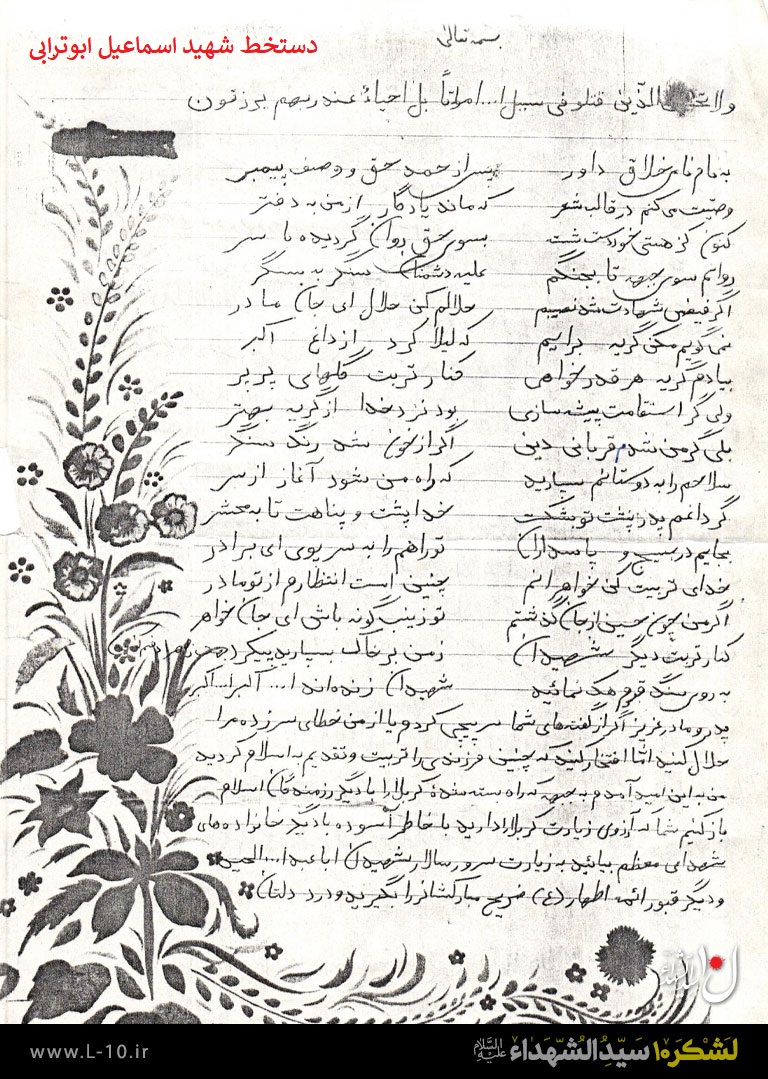 دستخط شهید اسماعیل ابوترابی
بسمه تعالی
ولا الذین قتلو فی سبیل ا... امواتاً بل احیاءٌ عند ربهم یرزقون
به نام نامی خلاق داور پس از حمد حق و وصف پیمبر
وصیّت می‌کنم در قالب شعر که ماند یادگار از من به دفتر
کنون کز هستی خود دست شسته بسوی حق روان گردیده با سر
روانم سوی جبهه تا بجنگم علیه دشمنان سنگر به سنگر
اگر فیض شهادت شد نصیبم حلالم کن حلال ای جان مادر
نمی‌گویم مکن گریه برایم که لیلا کرد از داغ اکبر
بیادم گریه هر قدر خواهی کنار تربت گلهای پرپر
ولی گر استقامت پیشه سازی بود نزد خدا از گریه بهتر
بلی گر من شدم قربانی دین اگر از خون شد رنگ سنگر
سلاحم را به دوستانم سپارید که راه من شود آغاز از سر
گر داغم پدر پشت تو بشکست خدا پشت و پناهت تا به محشر
بجایم در بسیج و پاسداران تو راهم را به سر پوی ای برادر
خدای تربیت کن خواهرانم چنین است انتظارم از تو مادر
اگر من چون حسین از جان گذشتم تو زینب گونه باش ای جان خواهر
کنار تربت دیگر شهیدان زمن بر خاک بسپارید پیکر
به روی سنگ قبرم حک نمائید شهیدان زنده‌اند ا... اکبر ا... اکبر
پدر و مادر عزیز اگر از گفته‌های شما سرپیچی کردم و یا از من خطای سر زده مرا
حلال کنید امّا افتخار کنید که چنین فرزندی را تربیت و تقدیم به اسلام کردید
من به این امید آمدم به جبهه که راه بسته شدهٔ کربلا را با دیگر رزمندگان اسلام
باز کنیم شما که آرزوی زیارت کربلا را دارید با خاطر آسوده با دیگر خانواده‌های
شهدای معظم بیائید به زیارت سرور سالار شهیدان اباعبدا... الحسین
و دیگر قبور ائمه اطهار (ع) ضریح مبارکشان را بگیرید و درد دلتان
لشکر ۱۰ سیّد الشّهداء علیه السلام
www.L-10.ir